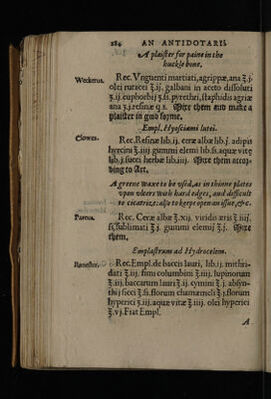 284 AN ANTIDOTARIE
A plaister for paine in the
huckle bone.
Weckerus. Rec. Vnguenti martiati, agrippæ, ana ℥.j.
olei rutacei ℥.ij. galbani in aceto dissoluti
℥.ij. euphorbij ʒ.ss. pyrethri, staphidis agriæ
ana ʒ.j. resinæ q.s. Mixe them and make a
plaister in good forme.
Empl. Hyosciami lutei.
Clowes. Rec. Resinæ lib.ij. ceræ albæ lib.j. adipis
hyrcini ℥.iiij gummi elemi lib.ss. aquæ vitæ
lib.j. succi herbæ lib.iiij. Mixe them accor-
ding to Art.
A greene waxe to be vsed, as in thinne plates
vpon vlcers with hard edges, and difficult
to cicatrize: also to keepe open an issue, &c.
Rec. Ceræ albæ ℥.xij. viridis æris ℥.iiij.
sublimati ʒ.j. gummi elemi ℥.j. Mixe
them.
Emplastrum ad Hydrocelem.
Rec. Empl. de baccis lauri, lib.ij. mithri-
dati ℥.ij. fimi columbini ℥.iij. lupinorum
℥.iij. baccarum lauri ℥.ij. cymini ℥.j. absyn-
thij sicci ℥.ss. florum chamæmeli ℥.j. florum
hyperici ℥.iij. aquæ vitæ ℥.iiij. olei hyperici
℥.vj. Fiat Empl.
A